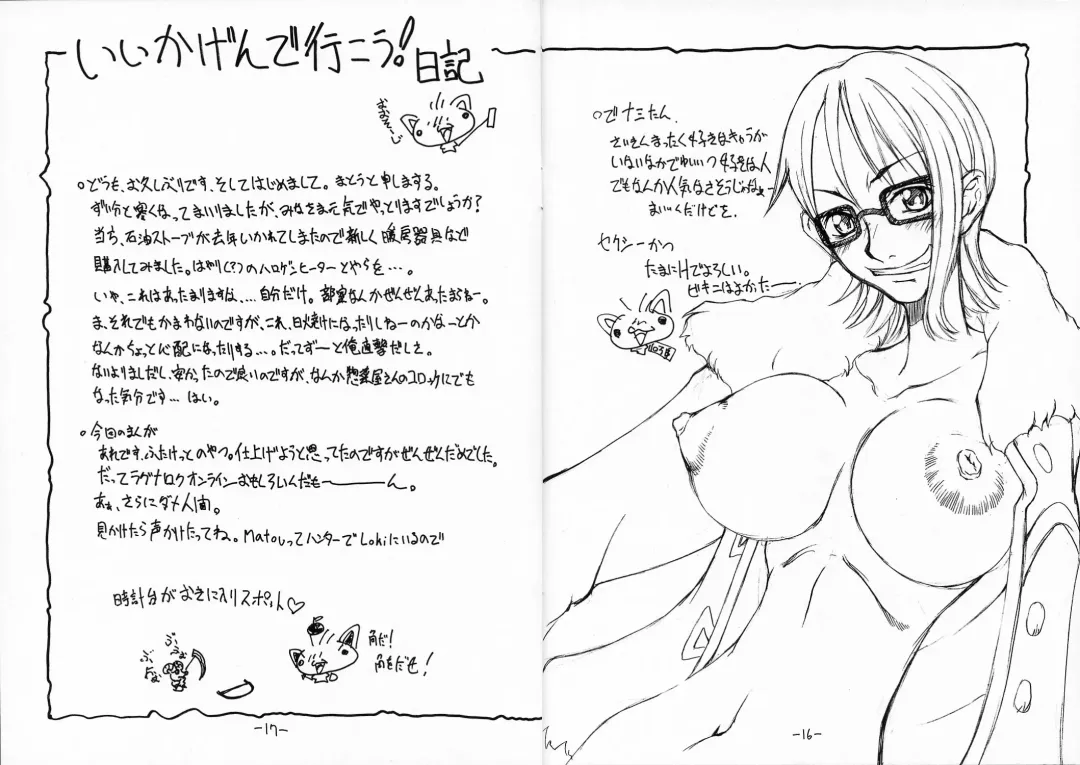 いいかげんで行こう!日記
○どうも、お久しぶりです、そしてはじめまして。まとうと申しまする。
ずい分と寒くなってまいりましたが、みなさま元気でやっとりますでしょうか?
当ち、石油ストーブが去年いかれてしまたので新しく暖房器具など
購入してみました。はやり(?)のハロゲンヒーターとやらを…。
いや、これはあったまりますね、…自分だけ。部室なんかぜんぜんあったまらねー。
ま、それでもかまわないのですが、これ、日焼けになったりしねーのかなーとか
なんかちょっと心配になったりする…。だってずーと俺直撃だしさ。
ないよりましだし、安かったので良いのですが、なんか惣菜屋さんのコロッケにでも
なった気分です…はい。
○今回のまんが
あれです、ふたけっとのやつ。仕上げようと思ってたのですがぜんぜんだめでした。
だってラグナロクオンラインおもしろいんだもーーーん。
あぁ、さらにダメ人間。
見かけたら声かけたってね。MatouってハンターでLokiにいるので
時計台がお気に入りスポット♡
角だ!
角をだせ!
-17-
○でナミたん、
さいきんまったく好きなきゃらが
いないなかでゆいいつ好きな人
でもなんか人気なさそうじゃねぇー
まいーくだけどを。
セクシーかつ
たまにHでよろしい。
ビキニはよかったー。
-16-